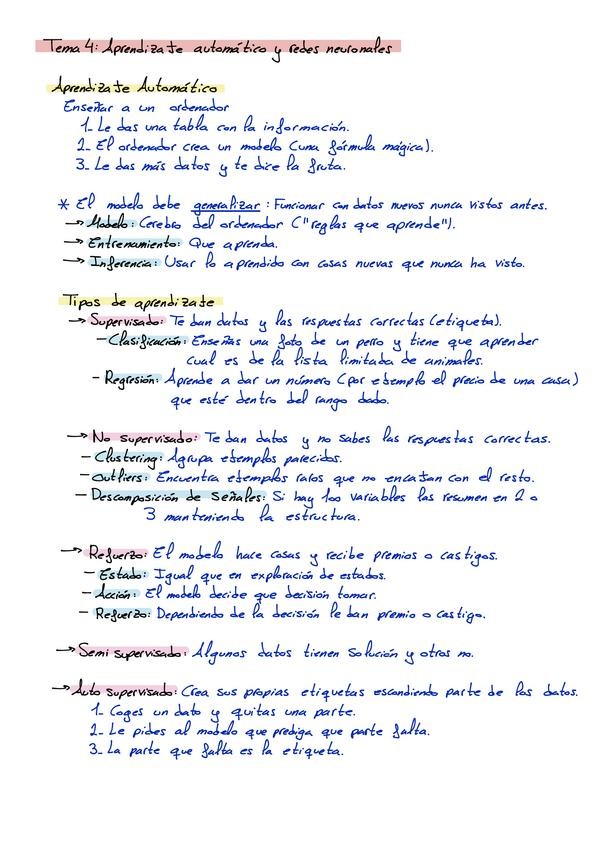 Tema 4: Aprendizaje automático y redes neuronales
Aprendizaje Automático
Enseñar a un ordenador
1- Le das una tabla con la información.
2- El ordenador crea un modelo (una fórmula mágica).
3- Le das más datos y te dice la fruta.
* El modelo debe generalizar: Funcionar con datos nuevos nunca vistos antes.
→ Modelo: Cerebro del ordenador ("reglas que aprende").
→ Entrenamiento: Que aprenda.
→ Inferencia: Usar lo aprendido con cosas nuevas que nunca ha visto.
Tipos de aprendizaje
→ Supervisado: Te dan datos y las respuestas correctas (etiqueta).
- Clasificación: Enseñas una foto de un perro y tiene que aprender
cual es de la lista limitada de animales.
- Regresión: Aprende a dar un número (por ejemplo el precio de una casa)
que esté dentro del rango dado.
→ No supervisado: Te dan datos y no sabes las respuestas correctas.
- Clustering: Agrupa ejemplos parecidos.
- Outliers: Encuentra ejemplos raros que no encajan con el resto.
- Descomposición de Señales: Si hay 100 variables las resumen en 2 o
3 manteniendo la estructura.
→ Refuerzo: El modelo hace cosas y recibe premios o castigos.
- Estado: Igual que en exploración de estados.
- Acción: El modelo decide que decisión tomar.
- Refuerzo: Dependiendo de la decisión le dan premio o castigo.
→ Semi supervisado: Algunos datos tienen solución y otros no.
→ Auto supervisado: Crea sus propias etiquetas escondiendo parte de los datos.
1- Coges un dato y quitas una parte.
2- Le pides al modelo que prediga que parte falta.
3- La parte que falta es la etiqueta.